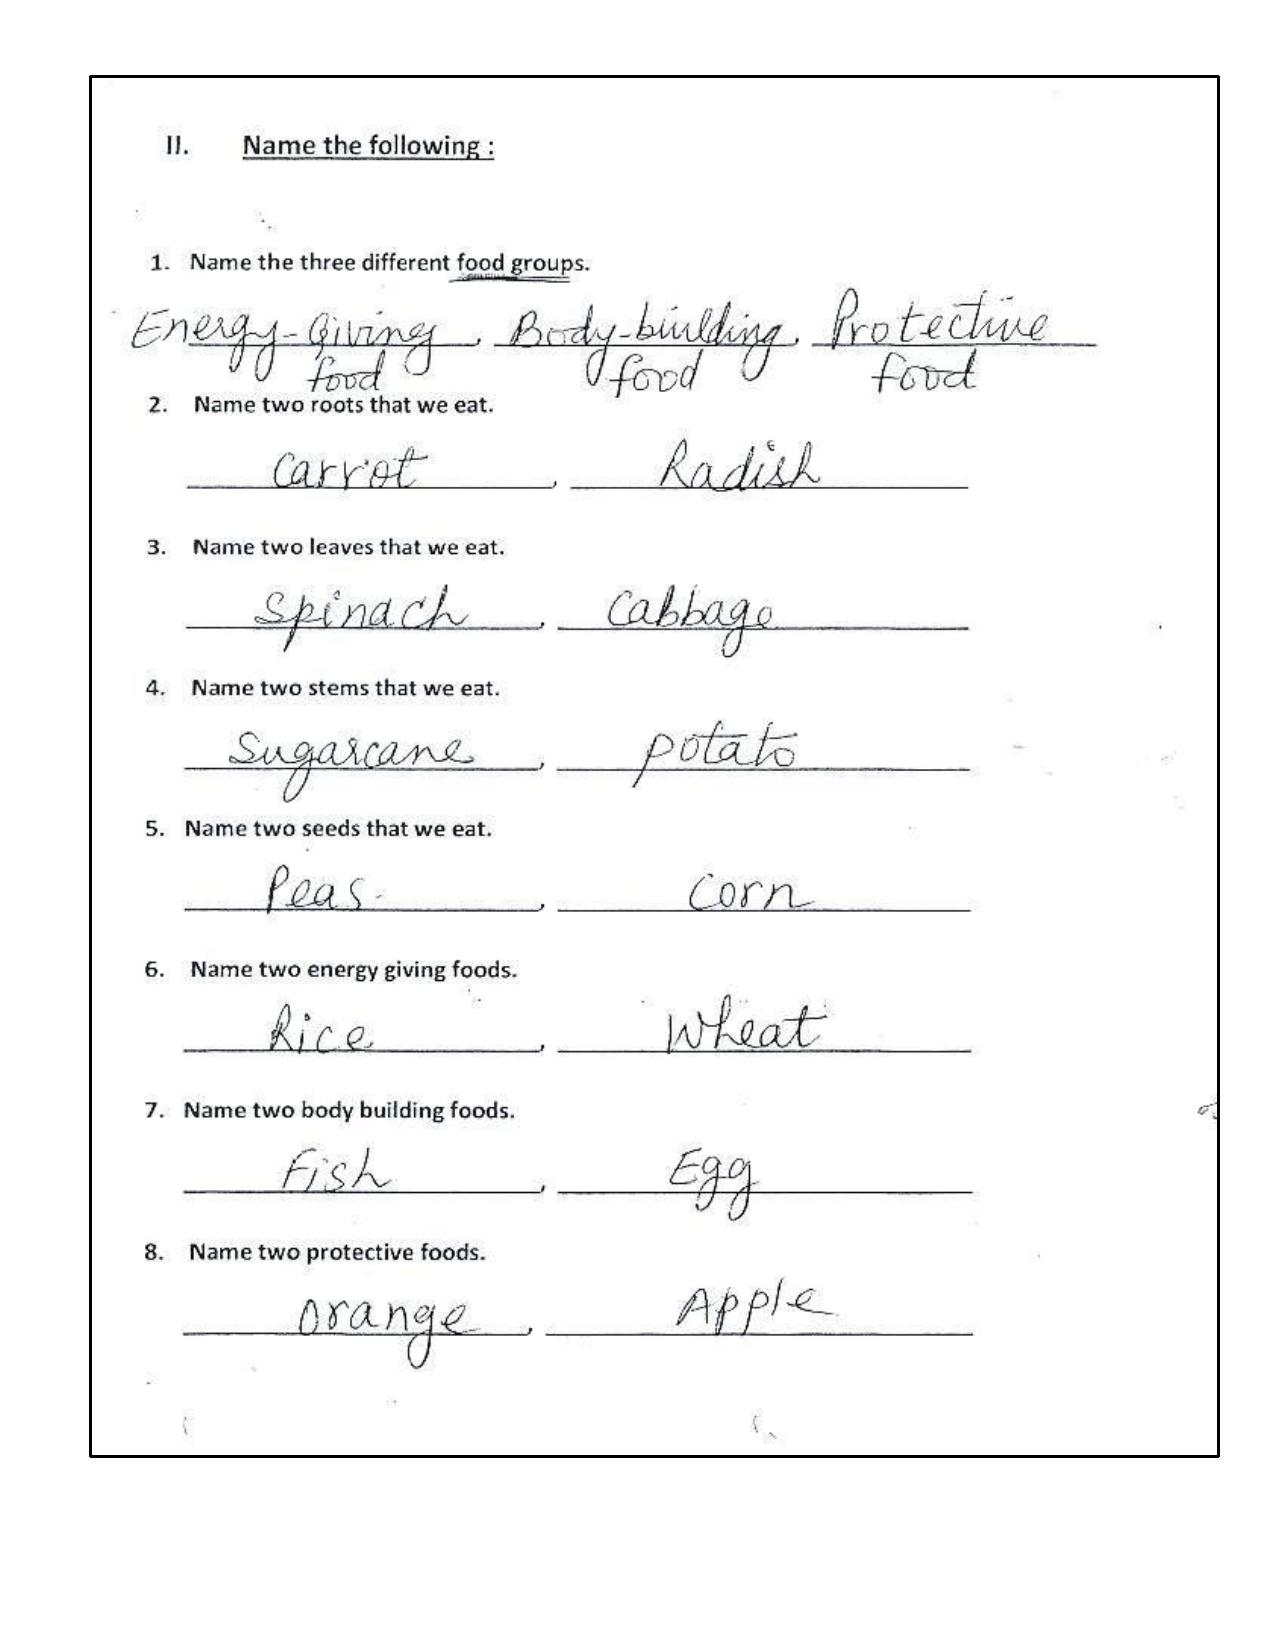 II. Name the following :
1. Name the three different food groups.
Energy-Giving food, Body-building food, Protective food
2. Name two roots that we eat.
Carrot, Radish
3. Name two leaves that we eat.
Spinach, Cabbage
4. Name two stems that we eat.
Sugarcane, Potato
5. Name two seeds that we eat.
Peas, Corn
6. Name two energy giving foods.
Rice, Wheat
7. Name two body building foods.
Fish, Egg
8. Name two protective foods.
Orange, Apple